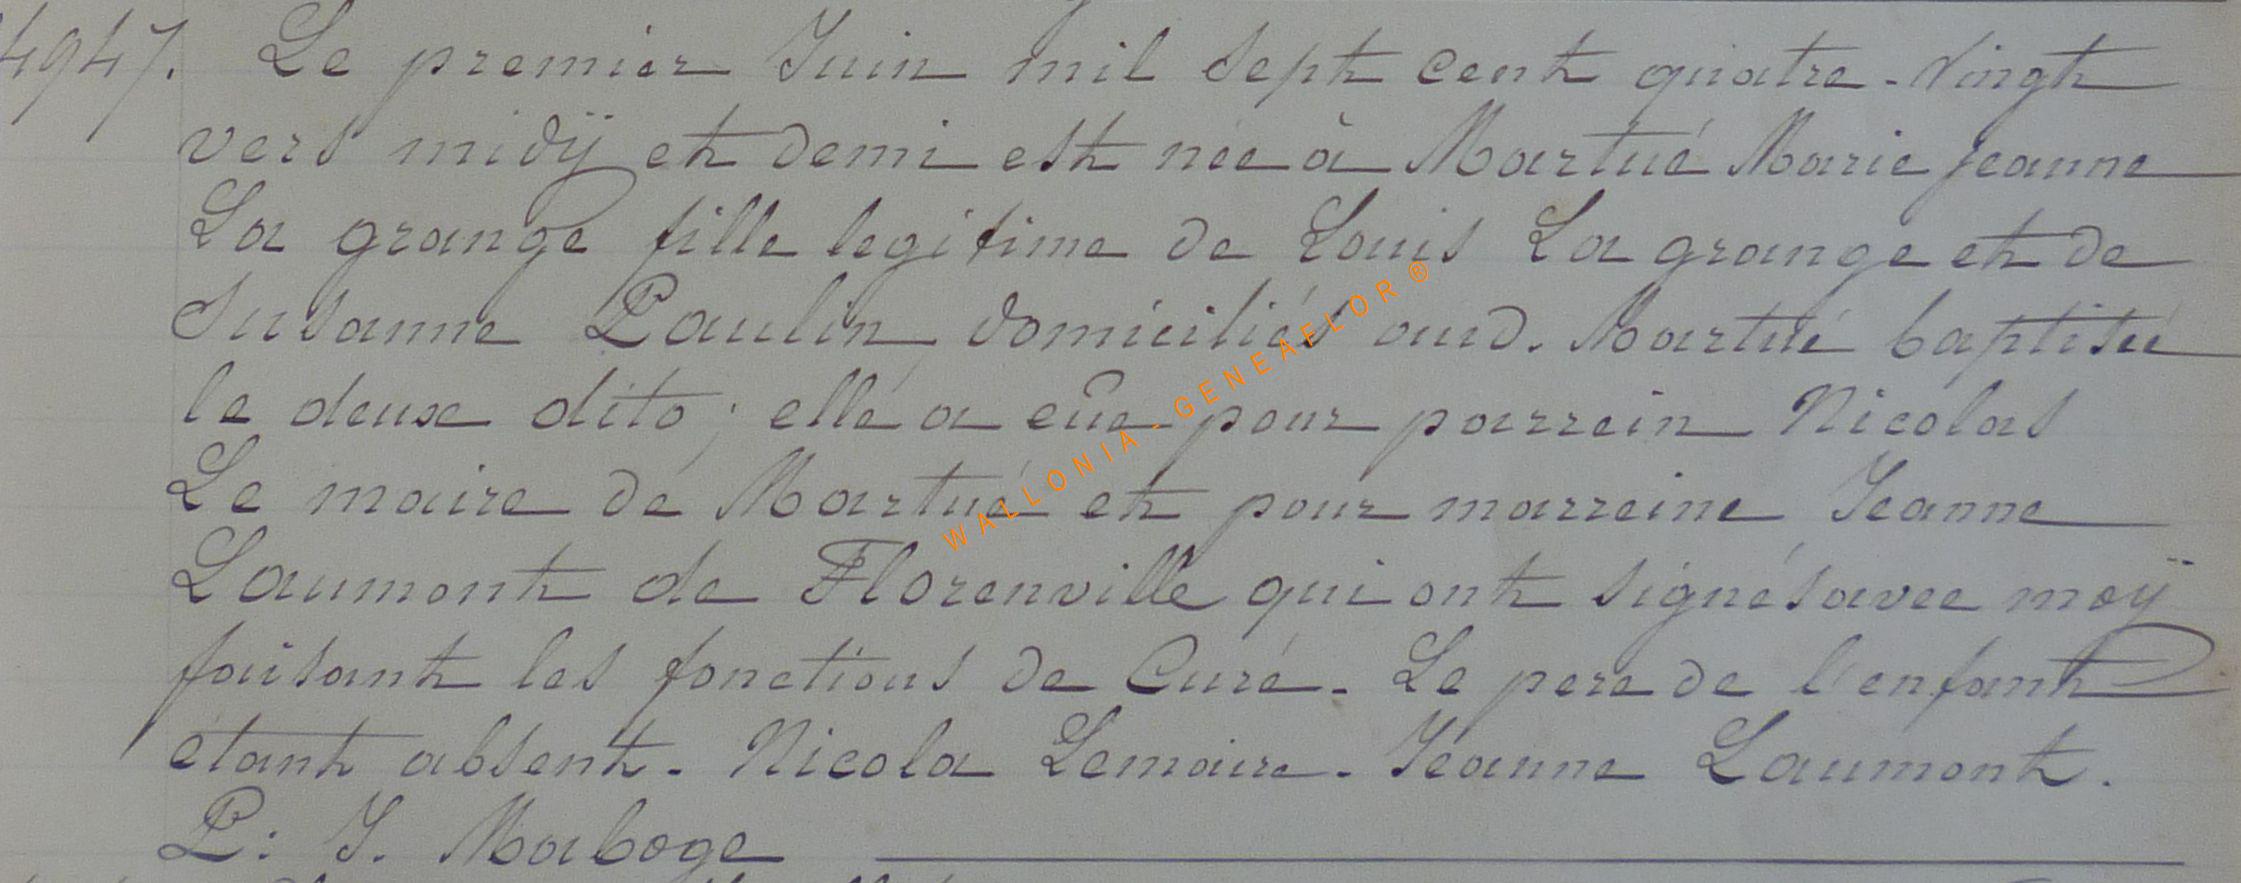 4947. Le premier Juin mil sept cent quatre-vingt
vers midÿ et demi est née à Martué Marie jeanne
La grange fille legitime de Louis La grange et de
Susanne Paulin domiciliés aud. Martué baptisée
le deux dito; elle a eûe pour parrein Nicolas
Le maire de Martué et pour marreine Jeanne
Laumont de Florenville qui ont signés avec moÿ
faisant les fonctions de Curé. Le pere de l'enfant
étant absent. Nicola Lemaire. Jéanne Laumont.
P: J. Maboge
WALLONIA-GENEAFLOR®